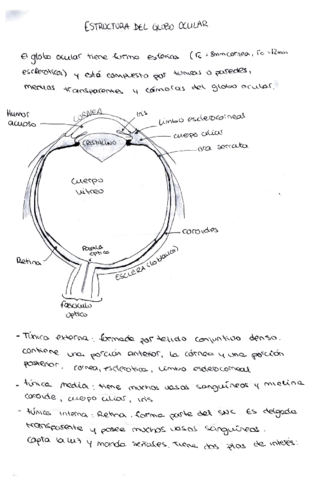 ESTRUCTURA DEL GLOBO OCULAR
El globo ocular tiene forma esférica (rc = 8mm cornea, rc = 12mm
esclerótica) y está compuesto por túnicas o paredes,
medios transparentes y cámaras del globo ocular.
Humor
acuoso
CORNEA
iris
Limbo esclerocorneal
cuerpo ciliar
CRISTALINO
ora serrata
Cuerpo
vítreo
coroides
Retina
Papila
óptica
ESCLERA (lo blanco)
Fascículo
óptico
- Túnica externa: formada por tejido conjuntivo denso.
contiene una porción anterior, la córnea y una porción
posterior. cornea, esclerótica, Limbo esclerocorneal
- túnica media: tiene muchos vasos sanguíneos y
coroide, cuerpo ciliar, iris
- túnica interna: Retina. forma parte del SNC. Es delgada
transparente y posee muchos vasos sanguíneos.
Capta la luz y manda señales. Tiene dos ptos de interés: